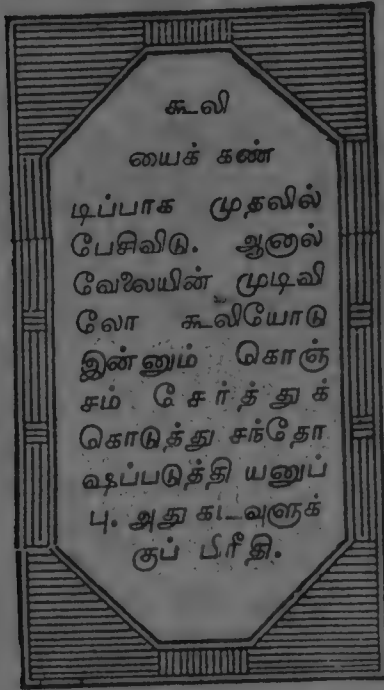 கூலி
யைக் கண்
டிப்பாக முதலில்
பேசிவிடு. ஆனால்
வேலையின் முடிவி
லோ கூலியோடு
இன்னும் கொஞ்
சம் சேர்த்துக்
கொடுத்து சந்தோ
ஷப்படுத்தி யனுப்
பு. அது கடவுளுக்
குப் பிரீதி.